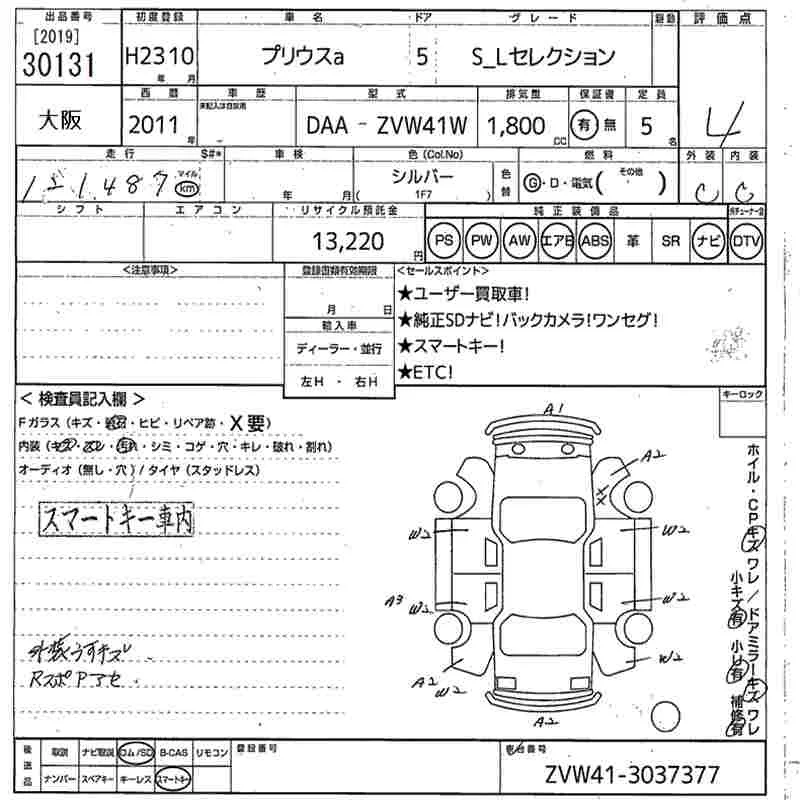 出品番号 初度登録 車名 ドア グレード 評価点
[2019]
30131 H2310 プリウスa 5 S_Lセレクション 4
年 月
大阪 西暦 車歴 型式 排気量 保証書 定員
未記入は自家用
2011年 DAA - ZVW41W 1,800cc 有 無 5名
走行 S#* 車検 色(Col.No) 燃料 外装 内装
121,487 マイル km 年 月 シルバー 色替 G・D・電気( その他 ) C C
( 1F7 )
シフト エアコン リサイクル預託金 純正装備品
13,220円 PS PW AW エアB ABS 革 SR ナビ DTV
<注意事項> 登録書類有効期限 <セールスポイント>
月 日 ★ユーザー買取車!
輸入車 ★純正SDナビ!バックカメラ!ワンセグ!
ディーラー・並行 ★スマートキー!
左H ・ 右H ★ETC!
< 検査員記入欄 > キーロック
Fガラス(キズ・飛石・ヒビ・リペア跡・X要)
内装(キズ・スレ・汚れ・シミ・コゲ・穴・キレ・破れ・割れ)
オーディオ(無し・穴)/タイヤ(スタッドレス)
スマートキー車内
外装うすキズ
RスポPアセ
A1
A2
XX
W2 W2
A3 W2 W2
A2 W2 W2
A2
ホイル・CPキズ ワレ/ドアミラーキズ ワレ
小キズ有 小凹有 補修有
後送品 取説 ナビ取説 ロム/SD B-CAS リモコン 登録番号 車台番号
ナンバー スペアキー キーレス スマートキー ZVW41-3037377